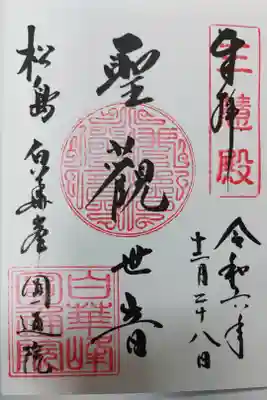 奉拝
三慧殿
令和六年
十二月二十八日
聖観世音
松島 白華峰 圓通院
白華峰
圓通院